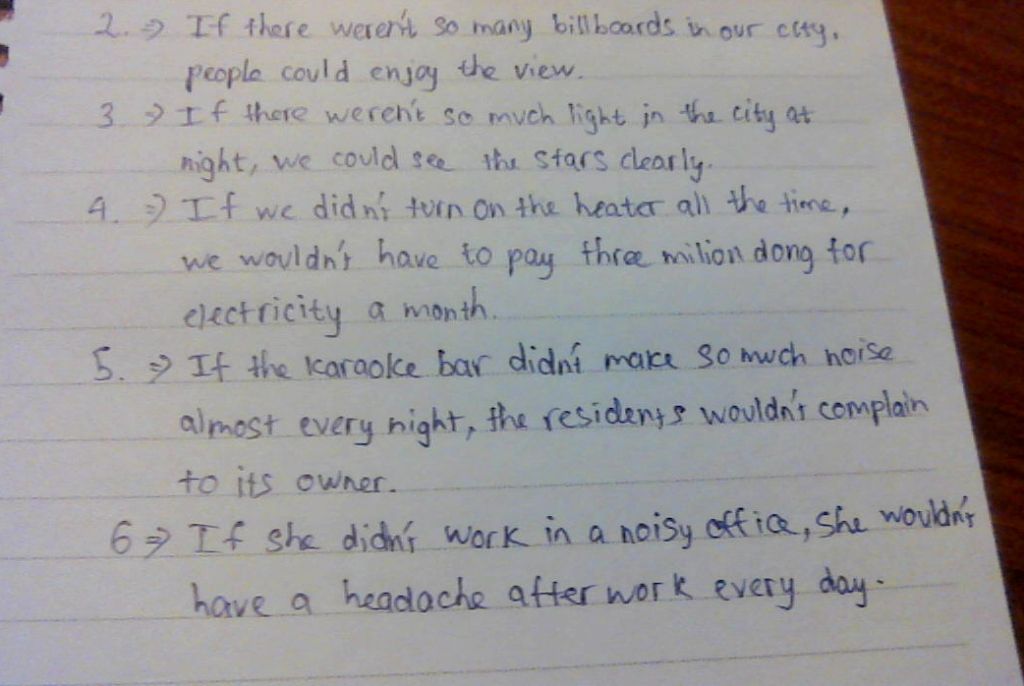 2. => If there weren't so many billboards in our city,
people could enjoy the view.
3 => If there weren't so much light in the city at
night, we could see the stars clearly.
4. => If we didn't turn on the heater all the time,
we wouldn't have to pay three milion dong for
electricity a month.
5. => If the karaoke bar didn't make so much noise
almost every night, the residents wouldn't complain
to its owner.
6 => If she didn't work in a noisy office, she wouldn't
have a headache after work every day.